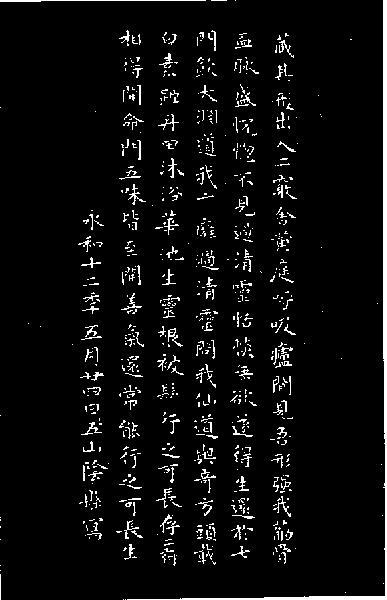 藏其形出入二竅舍黃庭呼吸廬間見吾形強我筋骨
血脈盛恍惚不見過清靈恬惔無欲遂得生還於七
門飲大淵道我玄雍過清靈問我仙道與奇方頭載
白素距丹田沐浴華池生靈根被髮行之可長存二府
相得開命門五味皆至開善氣還常能行之可長生
永和十二年五月廿四日五山陰縣寫